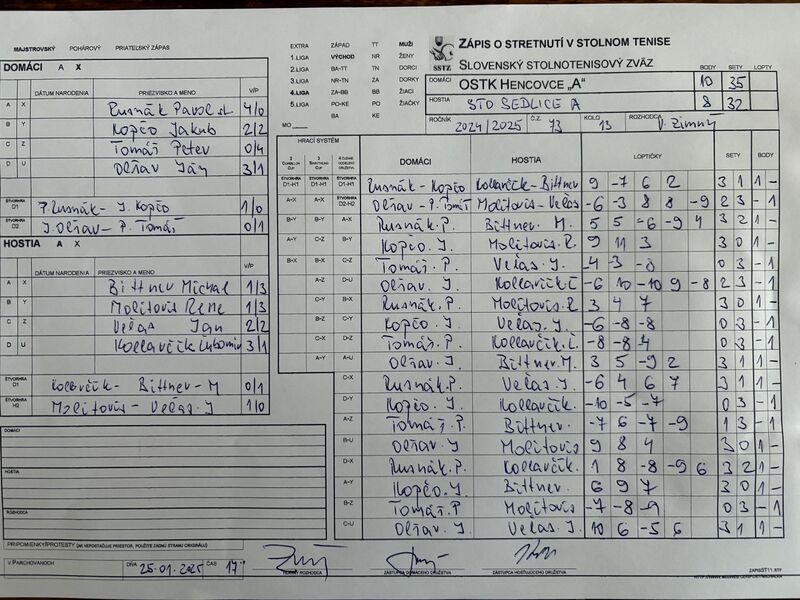 MAJSTROVSKÝ POHÁROVÝ PRIATEĽSKÝ ZÁPAS
EXTRA ZÁPAD TT MUŽI
1.LIGA VÝCHOD NR ŽENY
2.LIGA BA-TT TN DORCI
3.LIGA NR-TN ZA DORKY
4.LIGA ZA-BB BB ŽIACI
5.LIGA PO-KE PO ŽIAČKY
BA KE
MO
SSTZ
ZÁPIS O STRETNUTÍ V STOLNOM TENISE
SLOVENSKÝ STOLNOTENISOVÝ ZVÄZ
BODY SETY LOPTY
DOMÁCI OSTK HENCOVCE „A“ 10 35
HOSTIA STO SEDLICE A 8 32
ROČNÍK 2024/2025 Č.Z. 73 KOLO 13 ROZHODCA V. Zimný
DOMÁCI A X
DÁTUM NARODENIA PRIEZVISKO A MENO V/P
A X Rusnák Pavol 4/0
B Y Kopčo Jakub 2/2
C Z Tomáš Peter 0/4
D U Oľšav Ján 3/1
ŠTVORHRA D1 P. Rusnák - J. Kopčo 1/0
ŠTVORHRA D2 J. Oľšav - P. Tomáš 0/1
HOSTIA A X
DÁTUM NARODENIA PRIEZVISKO A MENO V/P
A X Bittner Michal 1/3
B Y Molitoris Rene 1/3
C Z Velas Jan 2/2
D U Kollarčík Ľubomír 3/1
ŠTVORHRA D1 Kollarčík - Bittner M 0/1
ŠTVORHRA H2 Molitoris - Velas J 1/0
DOMÁCI
HOSTIA
ROZHODCA
PRIPOMIENKY/PROTESTY (AK NEPOSTAČUJE PRIESTOR, POUŽITE ZADNÚ STRANU ORIGINÁLU)
V PARCHOVANOCH DŇA 25.01.2025 ČAS 17
HRACÍ SYSTÉM DOMÁCI HOSTIA LOPTIČKY SETY BODY
ŠTVORHRA D1-H1 ŠTVORHRA D1-H1 ŠTVORHRA D1-H1 Rusnák - Kopčo Kollarčík - Bittner 9 -7 6 2 3 1 1 -
A-X A-X ŠTVORHRA D2-H2 Oľšav - P. Tomáš Molitoris - Velas -6 -3 8 8 -9 2 3 - 1
B-Y B-Y A-X Rusnák. P. Bittner. M. 5 5 -6 -9 4 3 2 1 -
A-Y C-Z B-Y Kopčo. J. Molitoris. R. 9 11 3 3 0 1 -
B-X B-X C-Z Tomáš. P. Velas. J. -4 -3 -8 0 3 - 1
A-Z D-U Oľšav. J. Kollarčík Ľ -6 10 -10 9 -8 2 3 - 1
C-Y B-X Rusnák. P. Molitoris. R 3 4 7 3 0 1 -
B-Z C-Y Kopčo. J. Velas. J. -6 -8 -8 0 3 - 1
C-X D-Z Tomáš. P. Kollarčík. Ľ. -8 -8 -4 0 3 - 1
A-Y A-U Oľšav. J. Bittner. M. 3 5 -9 2 3 1 1 -
C-X Rusnák. P. Velas. J. -6 4 6 7 3 1 1 -
D-Y Kopčo. J. Kollarčík. -10 -5 -7 0 3 - 1
A-Z Tomáš. P. Bittner. -7 6 -7 -9 1 3 - 1
B-U Oľšav. J Molitoris 9 8 4 3 0 1 -
D-X Rusnák. P. Kollarčík. 1 8 -8 -9 6 3 2 1 -
A-Y Kopčo. J. Bittner. 6 9 7 3 0 1
B-Z Tomáš. P Molitoris -7 -8 -9 0 3 - 1
C-U Oľšav. J. Velas. J. 10 6 -5 6 3 1 1 -
HLAVNÝ ROZHODCA ZÁSTUPCA DOMÁCEHO DRUŽSTVA ZÁSTUPCA HOSŤUJÚCEHO DRUŽSTVA
ZAPISST11.RTF